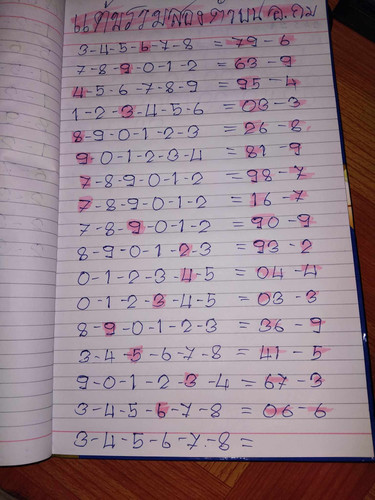 แต้มรวมสองตัวบน อ.คม
3-4-5-6-7-8 = 79-6
7-8-9-0-1-2 = 63-9
4-5-6-7-8-9 = 95-4
1-2-3-4-5-6 = 03-3
8-9-0-1-2-3 = 26-8
9-0-1-2-3-4 = 81-9
7-8-9-0-1-2 = 98-7
7-8-9-0-1-2 = 16-7
7-8-9-0-1-2 = 90-9
8-9-0-1-2-3 = 93-2
0-1-2-3-4-5 = 04-4
0-1-2-3-4-5 = 03-3
8-9-0-1-2-3 = 36-9
3-4-5-6-7-8 = 41-5
9-0-1-2-3-4 = 67-3
3-4-5-6-7-8 = 06-6
3-4-5-6-7-8 =